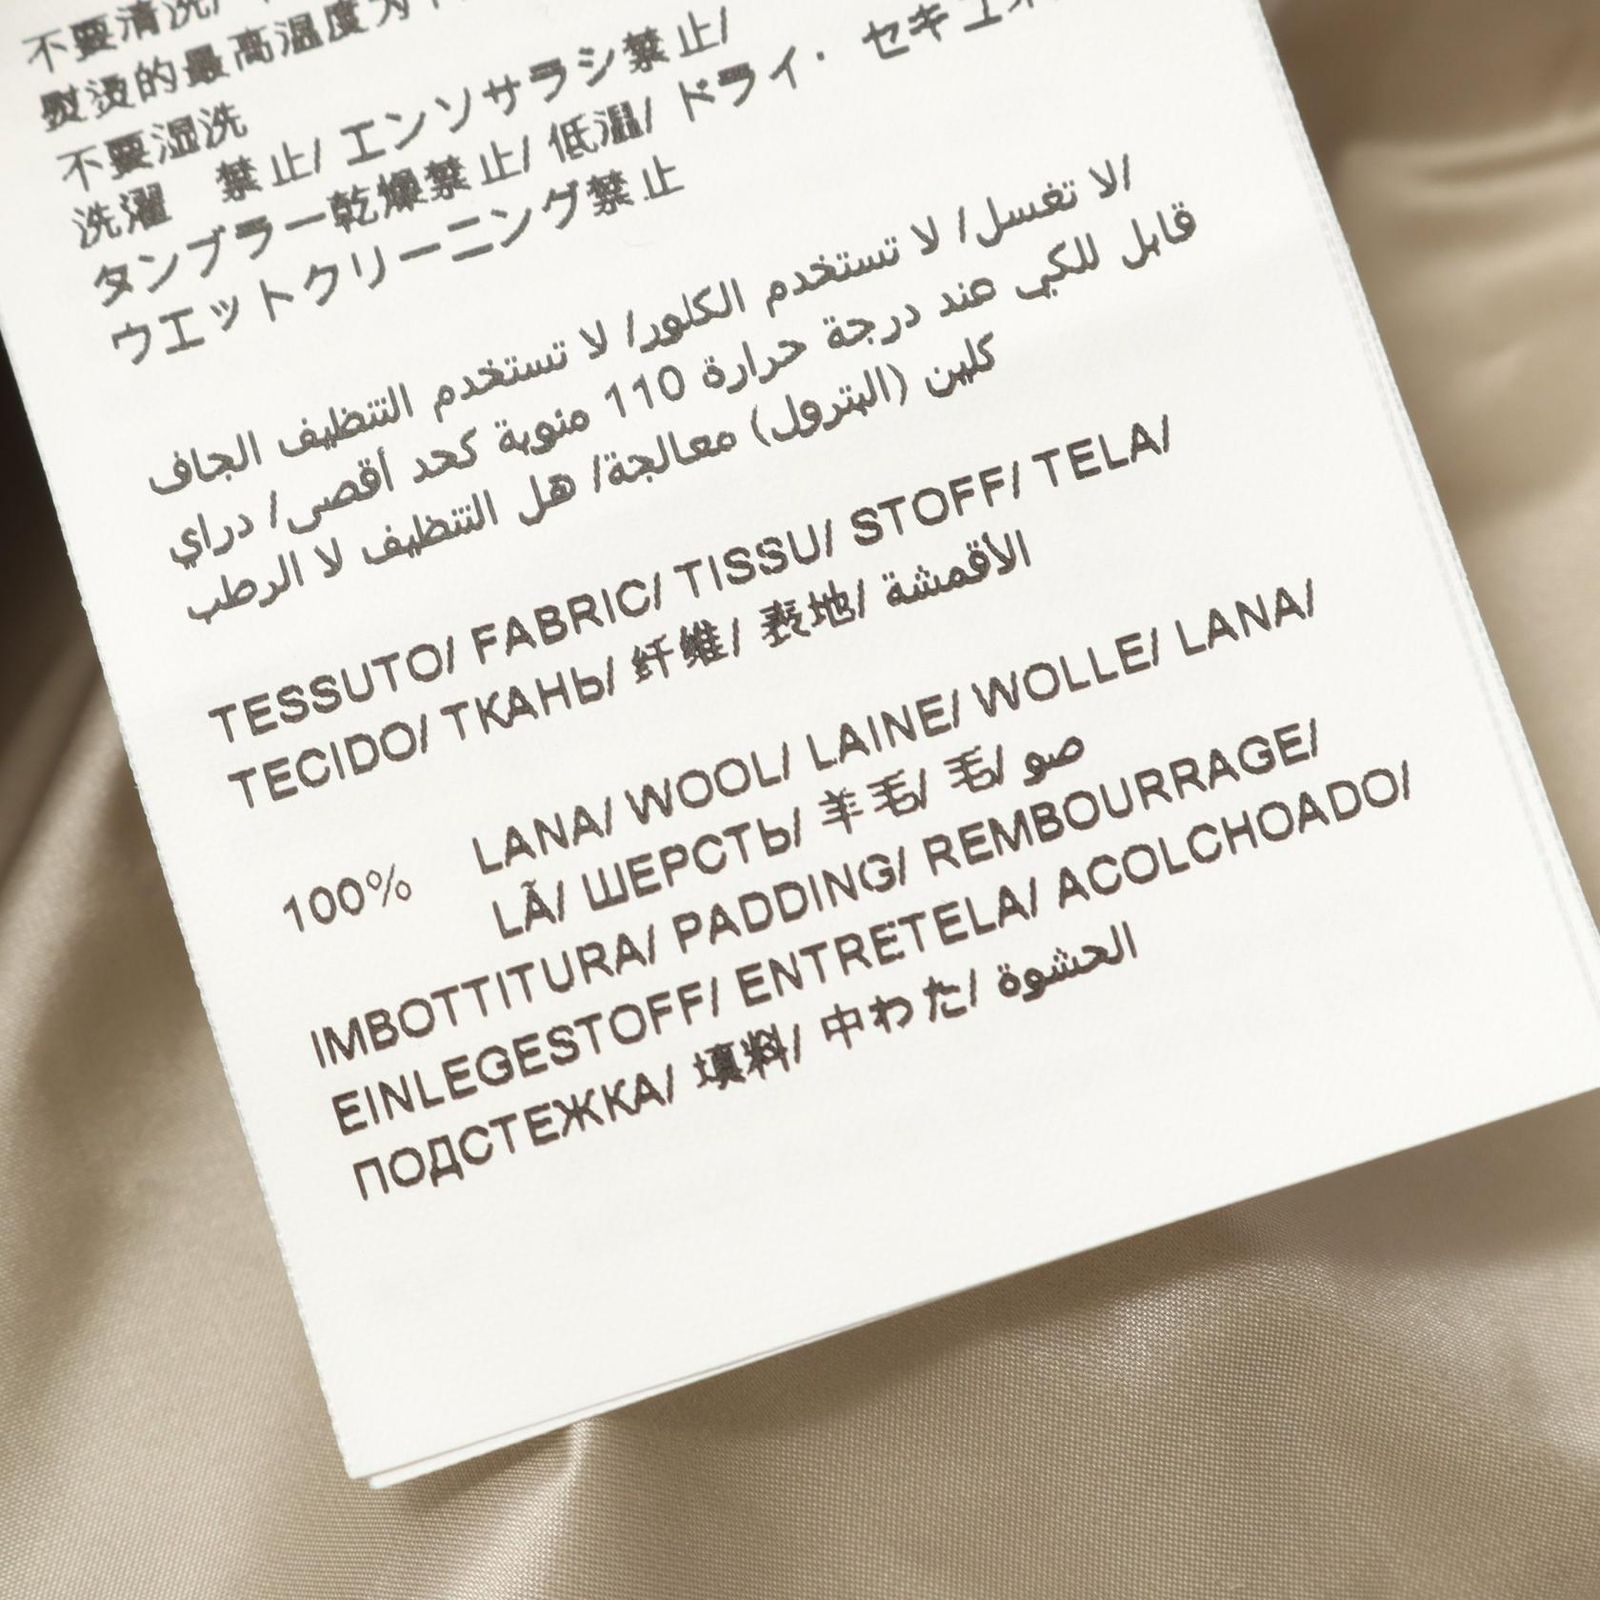 不要清洗/
熨烫的最高温度为
不要湿洗
洗濯　禁止/ エンソサラシ禁止/
タンブラー乾燥禁止/ 低温/ ドライ・セキユ
ウエットクリーニング禁止
لا تغسل/ لا تستخدم الكلور/ لا تستخدم التنظيف الجاف/
قابل للكي عند درجة حرارة 110 مئوية كحد أقصى/ دراي
كلين (البترول) معالجة/ هل التنظيف لا الرطب
TESSUTO/ FABRIC/ TISSU/ STOFF/ TELA/
TECIDO/ ТКАНЬ/ 纤维/ 表地/ الأقمشة
100% LANA/ WOOL/ LAINE/ WOLLE/ LANA/
LÃ/ ШЕРСТЬ/ 羊毛/ 毛/ صو
IMBOTTITURA/ PADDING/ REMBOURRAGE/
EINLEGESTOFF/ ENTRETELA/ ACOLCHOADO/
ПОДСТЕЖКА/ 填料/ 中わた/ الحشوة